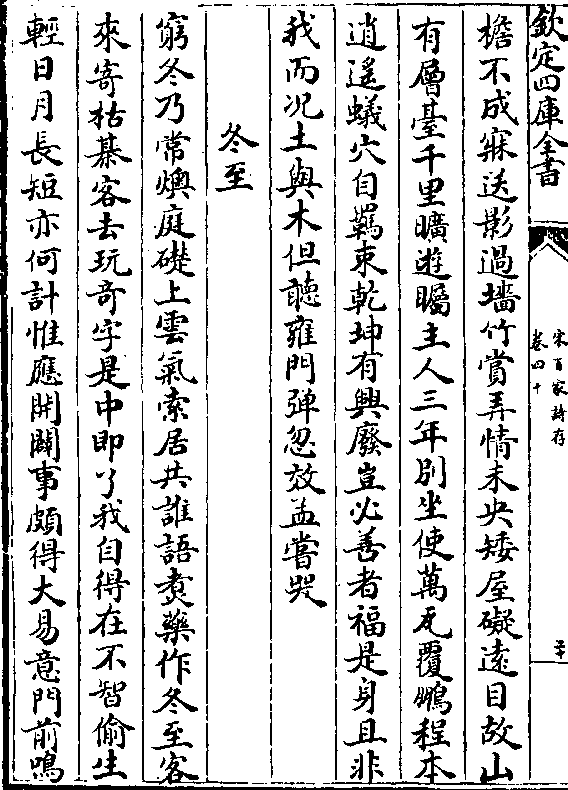 欽定四庫全書
宋百家詩存
卷四十
二十
檐不成寐送影過墻竹賞弄情未央矮屋礙遠目故山
有層臺千里曠遊矚主人三年別坐使萬瓦覆鵬程本
逍遥蟻穴自羈束乾坤有興廢豈必善者福是身且非
我而况土與木但聽雍門弹忽效孟嘗哭
冬至
窮冬乃常燠庭礎上雲氣索居共誰語煑藥作冬至客
來寄枯棊客去玩奇字是中即了我自得在不智偷生
輕日月長短亦何計惟應開闗事頗得大易意門前鳴